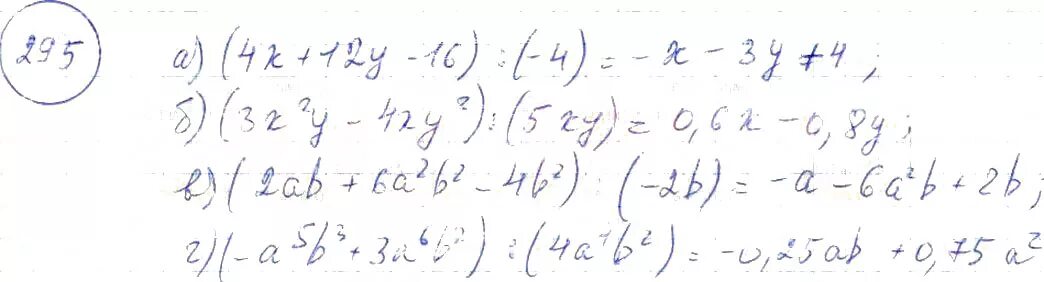 295 а) (4x + 12y - 16) : (-4) = -x - 3y + 4;
б) (3x²y - 4xy²) : (5xy) = 0,6x - 0,8y;
в) (2ab + 6a²b² - 4b²) : (-2b) = -a - 6a²b + 2b;
г) (-a⁵b³ + 3a⁶b²) : (4a⁴b²) = -0,25ab + 0,75a²